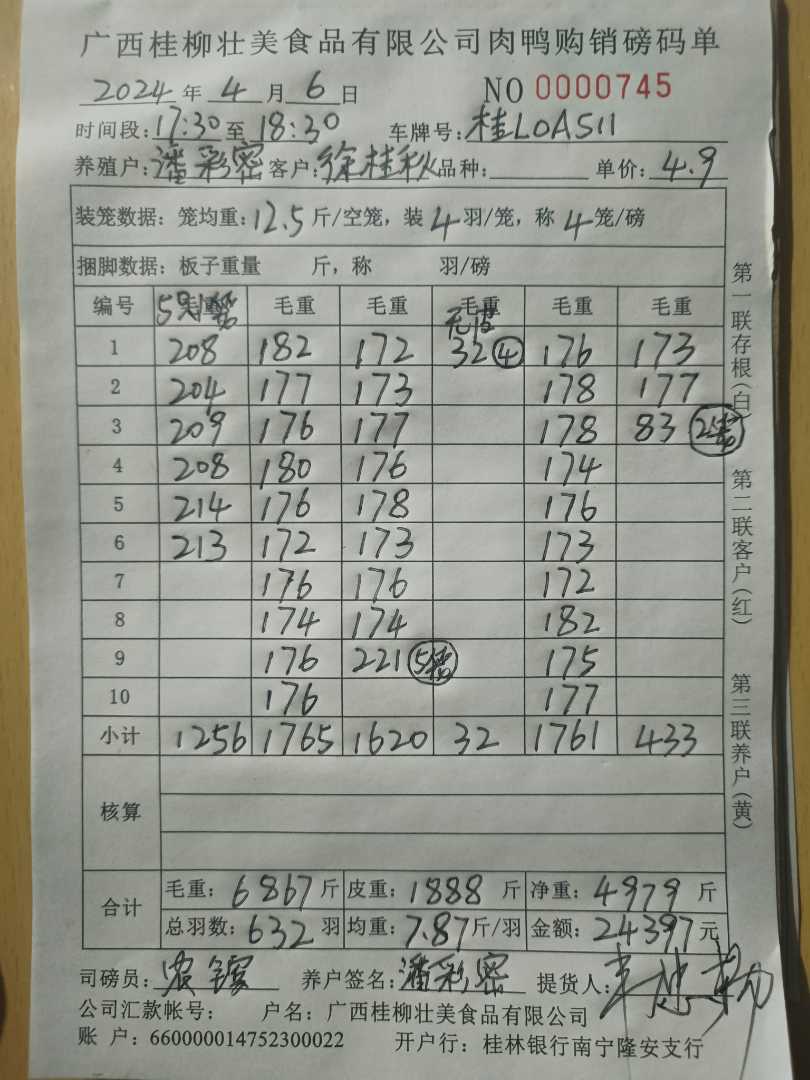 广西桂柳壮美食品有限公司肉鸭购销磅码单
2024 年 4 月 6 日 NO 0000745
时间段:17:30 至 18:30 车牌号:桂L0A511
养殖户:潘彩密 客户:徐桂秋 品种: 单价:4.9
装笼数据: 笼均重:12.5 斤/空笼, 装 4 羽/笼, 称 4 笼/磅
捆脚数据: 板子重量 斤, 称 羽/磅
编号 毛重 毛重 毛重 毛重 毛重 毛重
5只1笼 无皮
1 208 182 172 32 ④ 176 173
2 204 177 173 178 177
3 209 176 177 178 83 2笼
4 208 180 176 174
5 214 176 178 176
6 213 172 173 173
7 176 176 172
8 174 174 182
9 176 221 5笼 175
10 176 177
小计 1256 1765 1620 32 1761 433
核算
合计
毛重: 6867 斤 皮重: 1888 斤 净重: 4979 斤
总羽数: 632 羽 均重: 7.87 斤/羽 金额: 24397 元
司磅员: 养户签名: 潘彩密 提货人:
公司汇款帐号: 户名: 广西桂柳壮美食品有限公司
账 户: 660000014752300022 开户行: 桂林银行南宁隆安支行
第一联存根(白)
第二联客户(红)
第三联养户(黄)